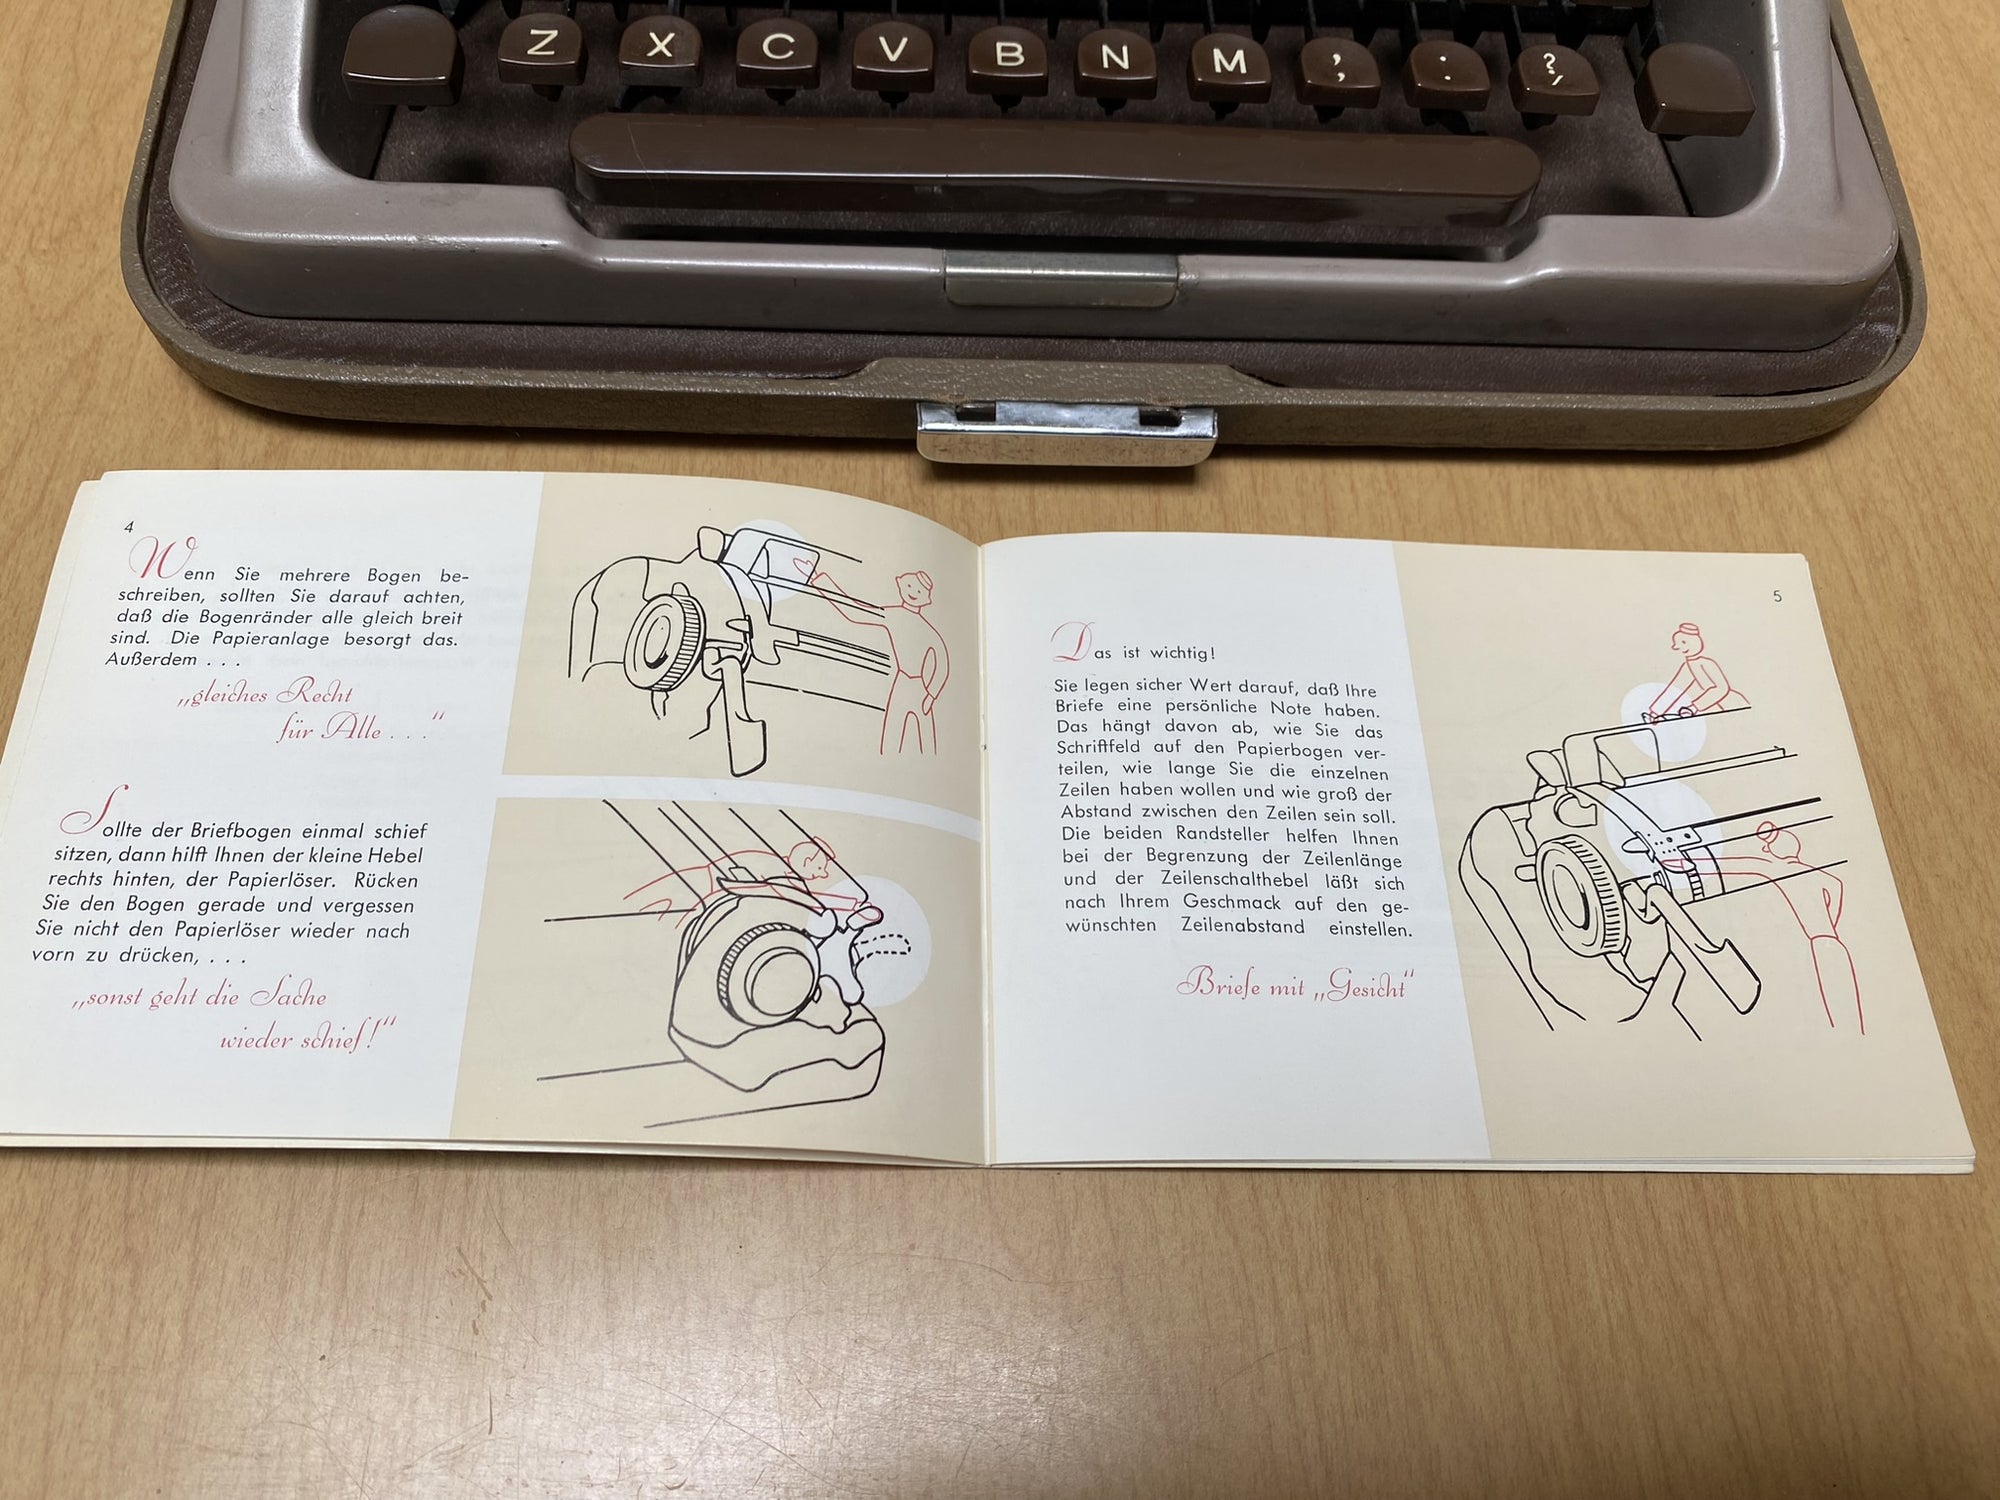 Z X C V B N M , ; . : ? /
4
Wenn Sie mehrere Bogen be-
schreiben, sollten Sie darauf achten,
daß die Bogenränder alle gleich breit
sind. Die Papieranlage besorgt das.
Außerdem . . .
„gleiches Recht
für Alle . . .“
Sollte der Briefbogen einmal schief
sitzen, dann hilft Ihnen der kleine Hebel
rechts hinten, der Papierlöser. Rücken
Sie den Bogen gerade und vergessen
Sie nicht den Papierlöser wieder nach
vorn zu drücken, . . .
„sonst geht die Sache
wieder schief!“
5
Das ist wichtig!
Sie legen sicher Wert darauf, daß Ihre
Briefe eine persönliche Note haben.
Das hängt davon ab, wie Sie das
Schriftfeld auf den Papierbogen ver-
teilen, wie lange Sie die einzelnen
Zeilen haben wollen und wie groß der
Abstand zwischen den Zeilen sein soll.
Die beiden Randsteller helfen Ihnen
bei der Begrenzung der Zeilenlänge
und der Zeilenschalthebel läßt sich
nach Ihrem Geschmack auf den ge-
wünschten Zeilenabstand einstellen.
Briefe mit „Gesicht“